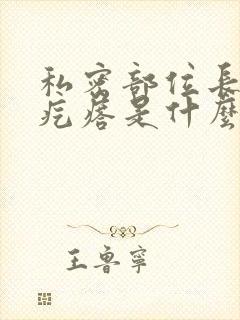 私密部位長
疙瘩是什麼
王魯寧